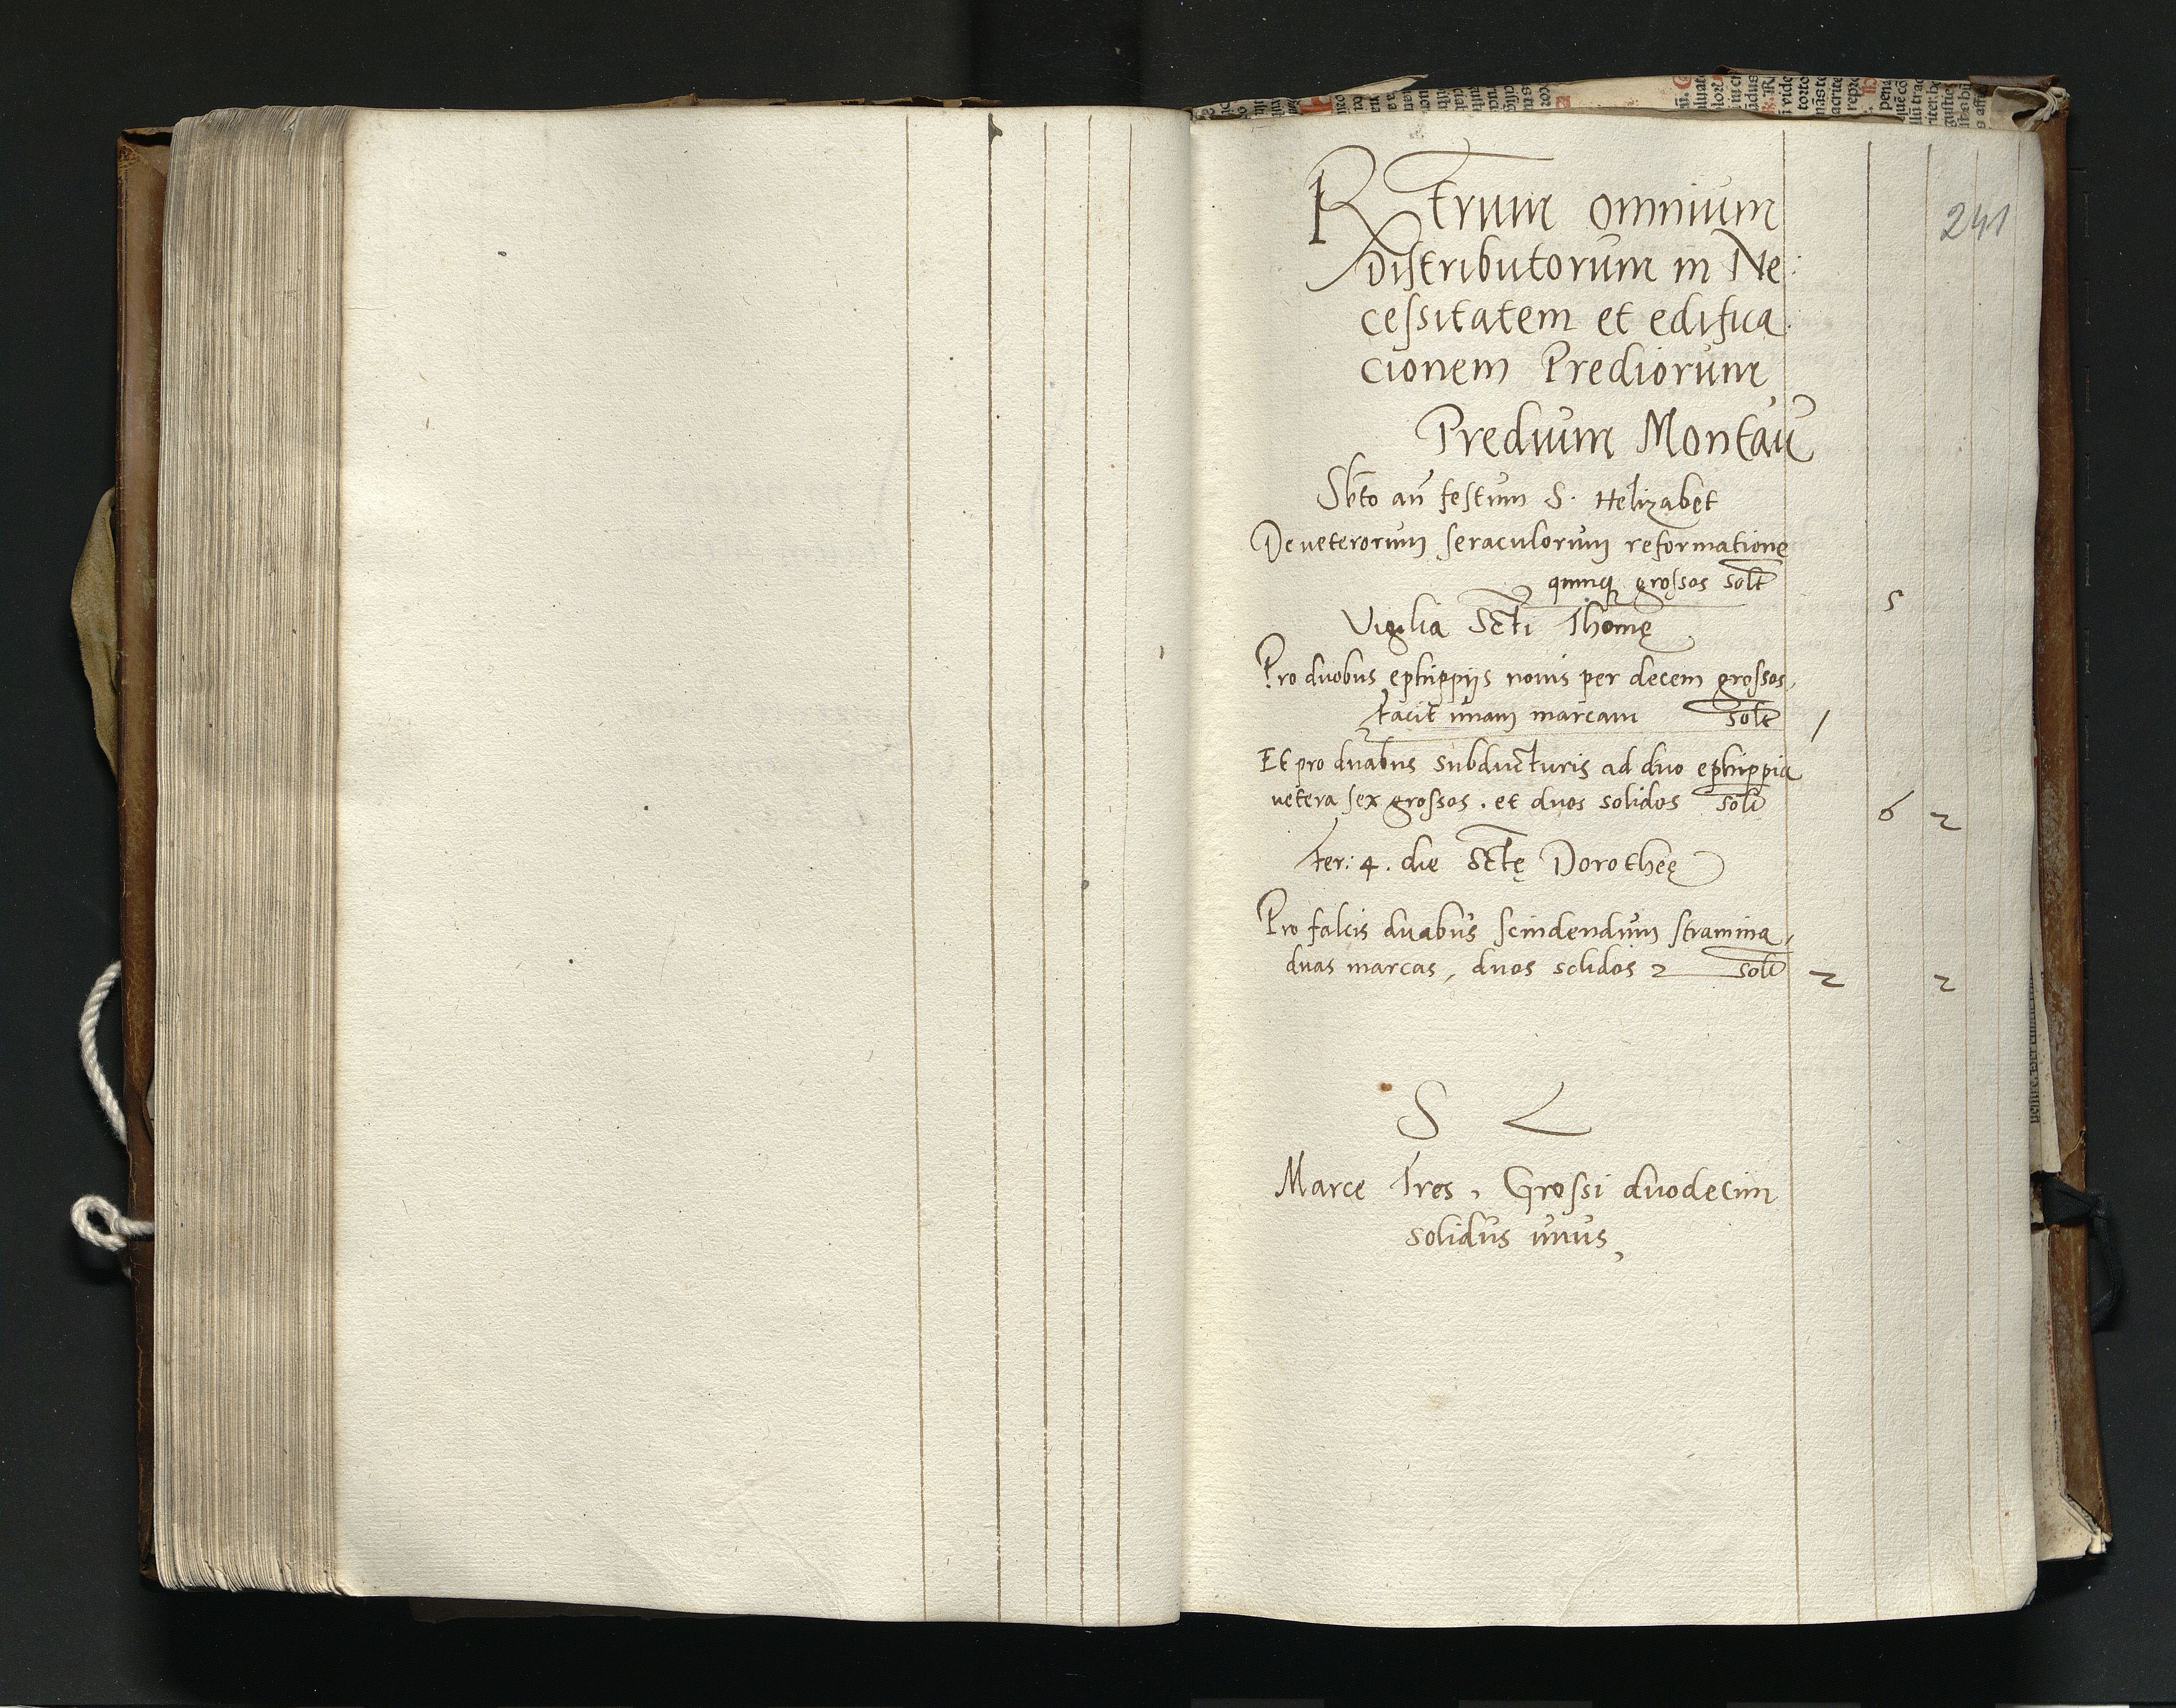 241
Rtrum omnium
Distributorum in Ne:
cessitatem et edifica
cionem Prediorum
Predium Montau
Sbto an̄ festum S. Helizabet
De veterorum seraculorum reformatione
quinq grossos solt 5
Vigilia Scti Thomę
Pro duobus ephippijs novis per decem grossos,
facit unam marcam solt 1
Et pro duabus subducturis ad duo ephippia
vetera sex grossos. et duos solidos solt 6 2
Fer: 4. die Sctę Dorotheę
Pro falcis duabus scindendum stramina,
duas marcas, duos solidos 2 solt 2 2
S L
Marce Tres, Grossi duodecim
solidus unus,